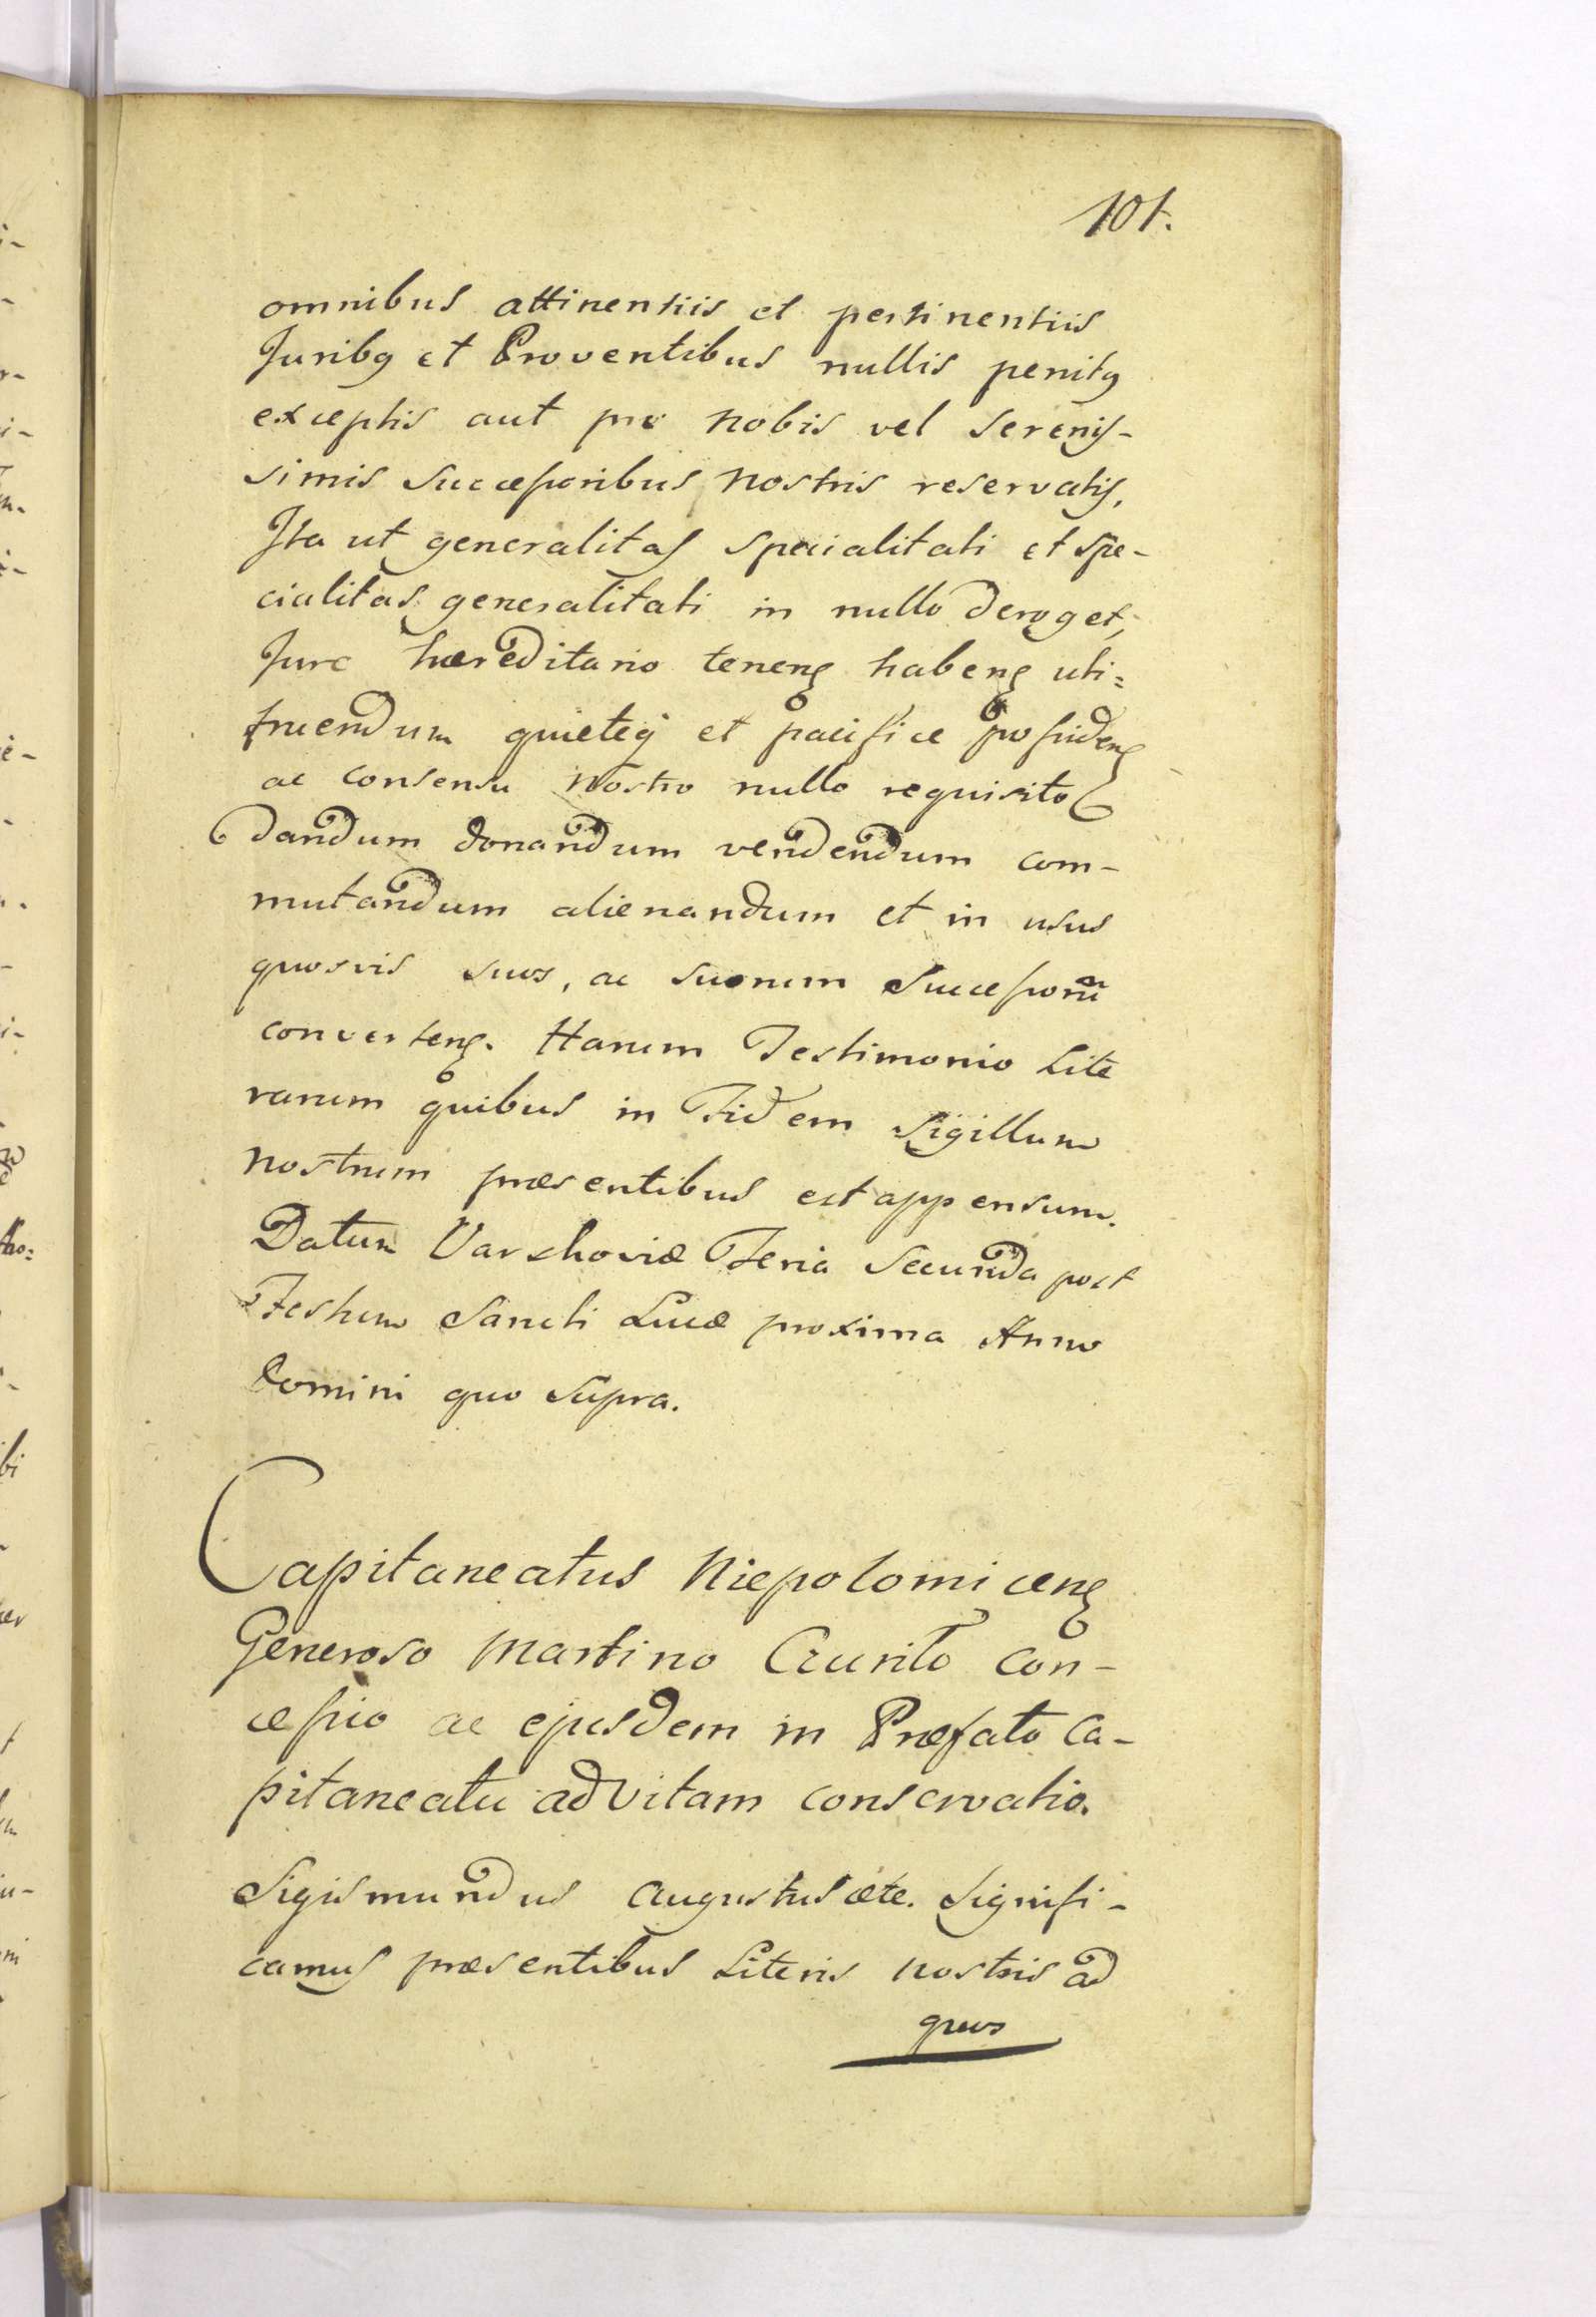 101.
omnibus attinentiis et pertinentiis
Juribq et Proventibus nullis penitq
exceptis aut pro nobis vel Serenis-
simis Successoribus nostris reservatis,
Ita ut generalitas specialitati et spe-
cialitas generalitati in nullo deroget,
Jure hæreditario tenenꝫ habenꝫ uti=
fruendum quieteq et pacifice possidenꝫ
ac consensu nostro nullo requisito
dandum donandum vendendum com-
mutandum alienandum et in usus
quosvis suos, ac suorum Successorũ
convertenꝫ. Harum Testimonio Lite
rarum quibus in Fidem Sigillum
nostrum præsentibus est appensum.
Datum Varshoviæ Feria Secunda post
Festum Sancti Lucæ proxima Anno
Domini quo Supra.
Capitaneatus Niepolomicenꝫ
Generoso Martino Czurilo con-
cessio ac ejusdem in Præfato Ca-
pitaneatu ad Vitam conservatio.
Sigismundus Augustus ætc. Signifi-
camus præsentibus Literis nostris ad
quos